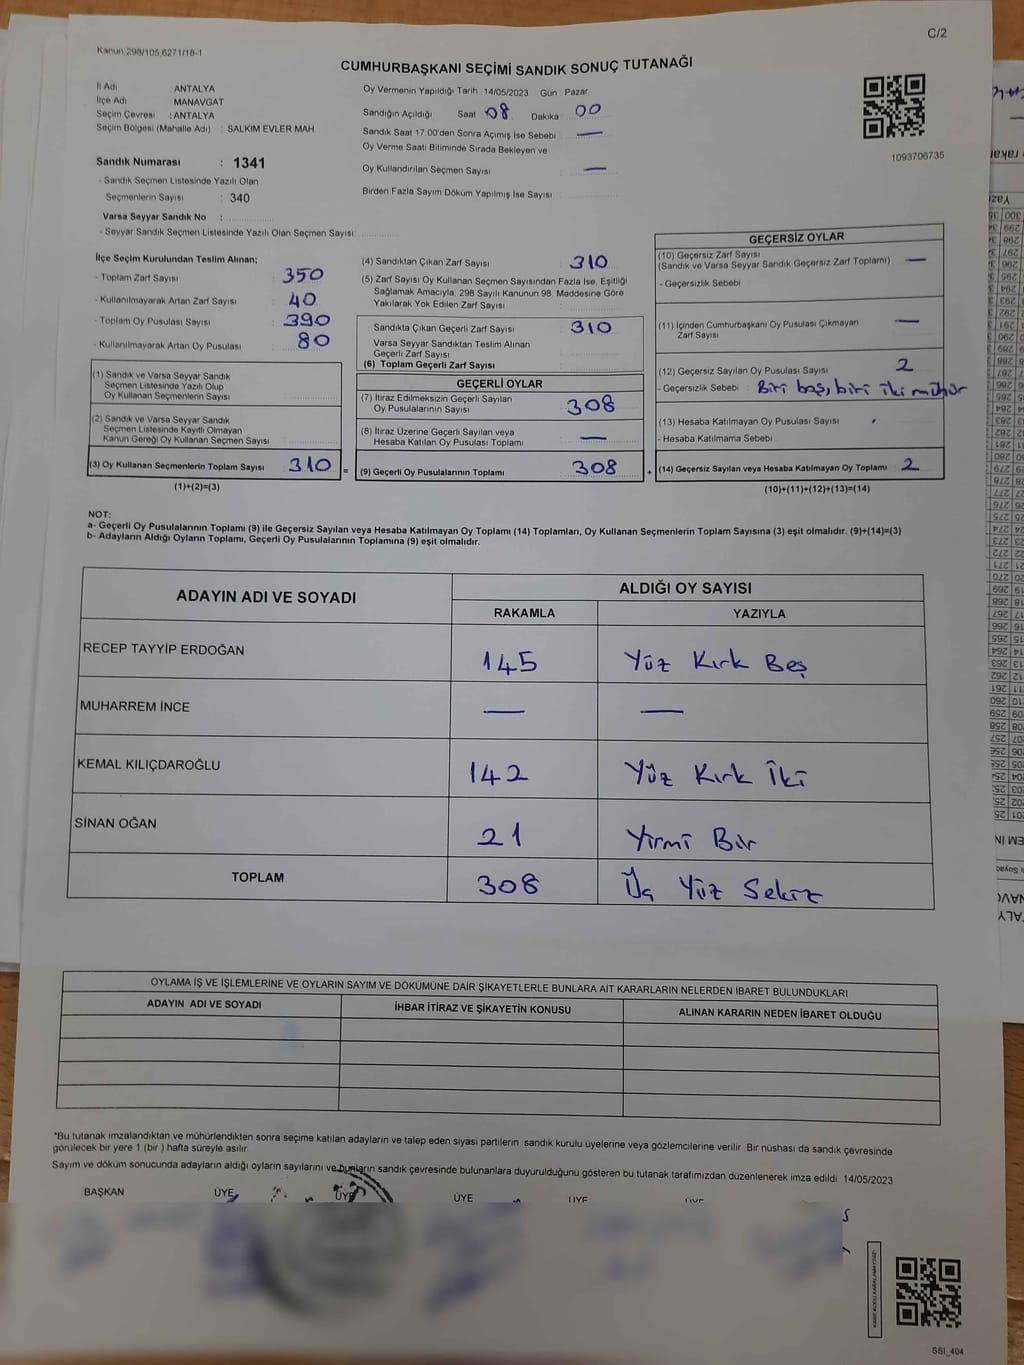 Kanun 298/105,6271/18-1
C/2
CUMHURBAŞKANI SEÇİMİ SANDIK SONUÇ TUTANAĞI
İl Adı : ANTALYA
İlçe Adı : MANAVGAT
Seçim Çevresi : ANTALYA
Seçim Bölgesi (Mahalle Adı) : SALKIM EVLER MAH.
Sandık Numarası : 1341
- Sandık Seçmen Listesinde Yazılı Olan
Seçmenlerin Sayısı : 340
Varsa Seyyar Sandık No :
- Seyyar Sandık Seçmen Listesinde Yazılı Olan Seçmen Sayısı:
Oy Vermenin Yapıldığı Tarih :14/05/2023 Gün : Pazar
Sandığın Açıldığı Saat 08 Dakika 00
Sandık Saat 17:00'den Sonra Açımış İse Sebebi : —
Oy Verme Saati Bitiminde Sırada Bekleyen ve
Oy Kullandırılan Seçmen Sayısı : —
Birden Fazla Sayım Döküm Yapılmış İse Sayısı :
1093706735
İlçe Seçim Kurulundan Teslim Alınan;
- Toplam Zarf Sayısı : 350
- Kullanılmayarak Artan Zarf Sayısı : 40
- Toplam Oy Pusulası Sayısı : 390
- Kullanılmayarak Artan Oy Pusulası : 80
(1) Sandık ve Varsa Seyyar Sandık
Seçmen Listesinde Yazılı Olup
Oy Kullanan Seçmenlerin Sayısı :
(2) Sandık ve Varsa Seyyar Sandık
Seçmen Listesinde Kayıtlı Olmayan
Kanun Gereği Oy Kullanan Seçmen Sayısı :
(3) Oy Kullanan Seçmenlerin Toplam Sayısı : 310 =
(1)+(2)=(3)
(4) Sandıktan Çıkan Zarf Sayısı : 310
(5) Zarf Sayısı Oy Kullanan Seçmen Sayısından Fazla İse, Eşitliği
Sağlamak Amacıyla, 298 Sayılı Kanunun 98. Maddesine Göre
Yakılarak Yok Edilen Zarf Sayısı :
Sandıkta Çıkan Geçerli Zarf Sayısı : 310
Varsa Seyyar Sandıktan Teslim Alınan
Geçerli Zarf Sayısı :
(6) Toplam Geçerli Zarf Sayısı :
GEÇERLİ OYLAR
(7) İtiraz Edilmeksizin Geçerli Sayılan
Oy Pusulalarının Sayısı : 308
(8) İtiraz Üzerine Geçerli Sayılan veya
Hesaba Katılan Oy Pusulası Toplamı : —
(9) Geçerli Oy Pusulalarının Toplamı : 308 +
GEÇERSİZ OYLAR
(10) Geçersiz Zarf Sayısı
(Sandık ve Varsa Seyyar Sandık Geçersiz Zarf Toplamı) : —
- Geçersizlik Sebebi :
(11) İçinden Cumhurbaşkanı Oy Pusulası Çıkmayan
Zarf Sayısı : —
(12) Geçersiz Sayılan Oy Pusulası Sayısı : 2
- Geçersizlik Sebebi : Biri boş, biri iki mühür
(13) Hesaba Katılmayan Oy Pusulası Sayısı :
- Hesaba Katılmama Sebebi :
(14) Geçersiz Sayılan veya Hesaba Katılmayan Oy Toplamı : 2
(10)+(11)+(12)+(13)=(14)
NOT:
a- Geçerli Oy Pusulalarının Toplamı (9) ile Geçersiz Sayılan veya Hesaba Katılmayan Oy Toplamı (14) Toplamları, Oy Kullanan Seçmenlerin Toplam Sayısına (3) eşit olmalıdır. (9)+(14)=(3)
b- Adayların Aldığı Oyların Toplamı, Geçerli Oy Pusulalarının Toplamına (9) eşit olmalıdır.
ADAYIN ADI VE SOYADI
ALDIĞI OY SAYISI
RAKAMLA YAZIYLA
RECEP TAYYİP ERDOĞAN 145 Yüz Kırk Beş
MUHARREM İNCE — —
KEMAL KILIÇDAROĞLU 142 Yüz Kırk İki
SİNAN OĞAN 21 Yirmi Bir
TOPLAM 308 Üç Yüz Sekiz
OYLAMA İŞ VE İŞLEMLERİNE VE OYLARIN SAYIM VE DÖKÜMÜNE DAİR ŞİKAYETLERLE BUNLARA AİT KARARLARIN NELERDEN İBARET BULUNDUKLARI
ADAYIN ADI VE SOYADI İHBAR İTİRAZ VE ŞİKAYETİN KONUSU ALINAN KARARIN NEDEN İBARET OLDUĞU
*Bu tutanak imzalandıktan ve mühürlendikten sonra seçime katılan adayların ve talep eden siyasi partilerin sandık kurulu üyelerine veya gözlemcilerine verilir. Bir nüshası da sandık çevresinde
görülecek bir yere 1 (bir ) hafta süreyle asılır.
Sayım ve döküm sonucunda adayların aldığı oyların sayılarını ve bunların sandık çevresinde bulunanlara duyurulduğunu gösteren bu tutanak tarafımızdan düzenlenerek imza edildi. 14/05/2023
BAŞKAN ÜYE ÜYE ÜYE ÜYE ÜYE
SSI_404